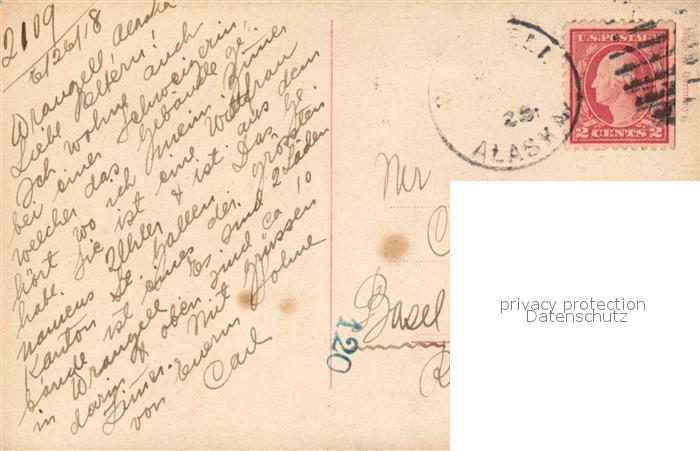 2109
6/26/18
Wrangell, Alaska
Liebe Eltern!
Ich wohne auch
bei einer Schweizerin,
welcher das Gebäude ge
hört wo ich mein Zimer
habe. Sie ist eine Wittfrau
namens Uhler & ist aus dem
Kanton St. Gallen. Das Ge
bäude ist eines der grössten
in Wrangell. Es sind 2 Läden
darin & oben sind ca 10
Zimer. Mit Grüssen
von Euerm Sohne
Carl
25
ALASKA
U.S. POSTAGE
2 CENTS 2
Mr
Basel
120
privacy protection
Datenschutz